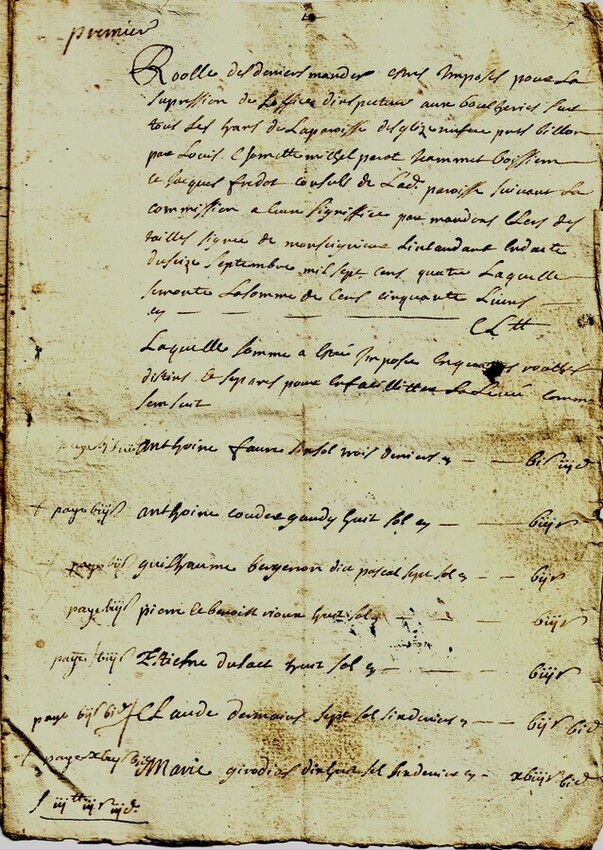 premier
Roolle des deniers mandes estres Imposes pour La
supression de Loffice dinspecteur aux boucheries sur
tous Les hans de La paroisse desglize neufve pres billon
par Louis michel perot
et Jacques fredot consuls de Lad. paroisse suivant La
commission a leur signiffiee par mandons Clers des
tailles signee de monseigneur Lintandant En datte
du seize septembre mil sept cens quatre Laquelle
se monte La somme de cens cinquante Livres
cy — — — CL tt
Laquelle somme a Esté Impose En quatres roolles
distins Et separes pour En faciliter La Levée comme
sensuit
page anthoine faure sol trois deniers cy — — iijd
+ page biijs anthoine coudere gaudy huit sol cy — — — biijs
page biis guilhaume bergenon dit pascal sept sol cy — — biis
page biijs pierre benoist huit sol cy — — — biijs
page biijs Estiene dulact huit sol cy — — — biijs
page biis bid Claude dermains sept sol six deniers cy — — biis bid
+ page xbiijs bid Marie girodias dixhuit sol six deniers cy — xbiijs bid
iij tt iijs iijd.